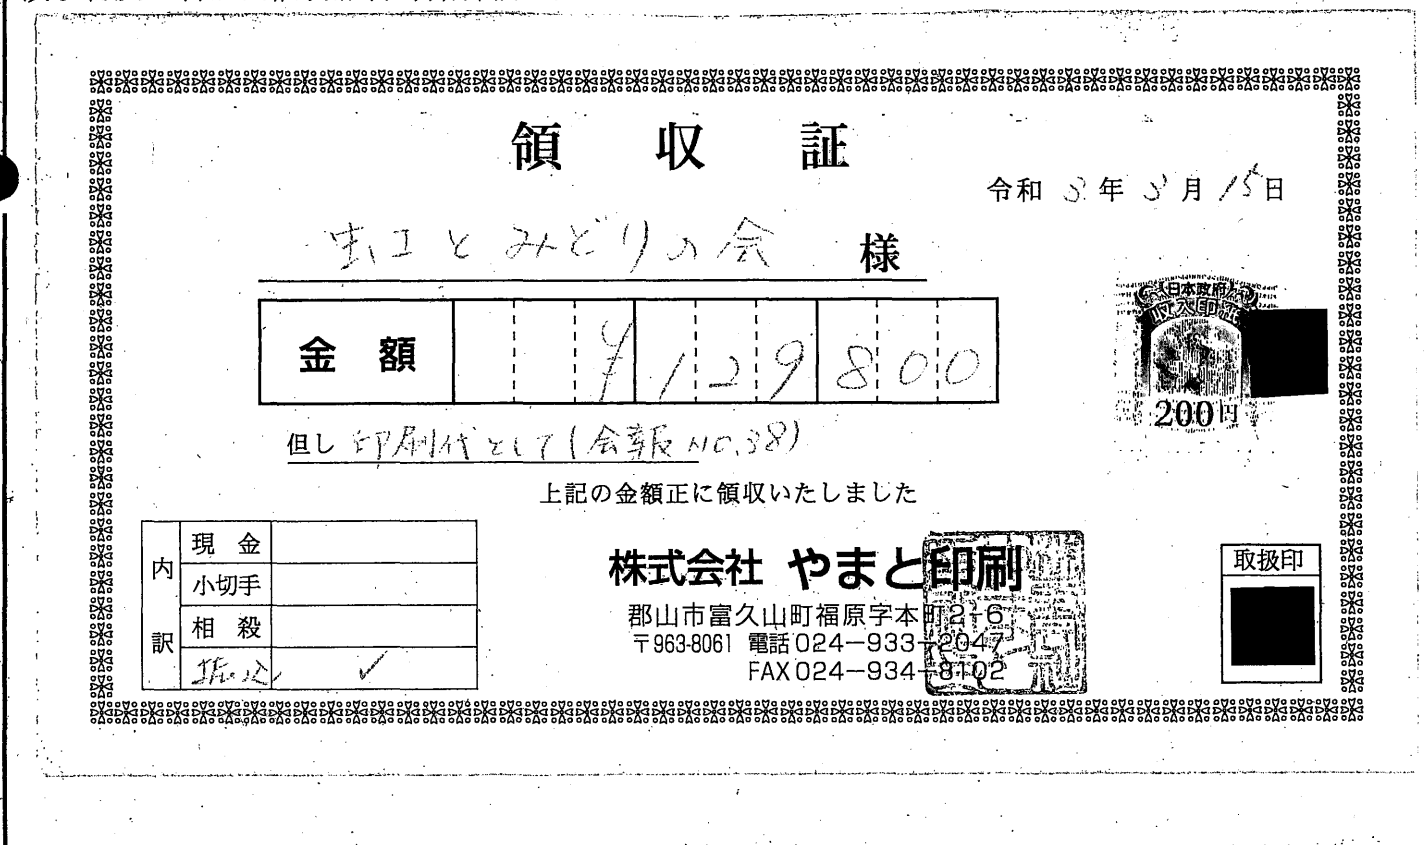 領収証
令和 3 年 3 月 15 日
虹とみどりの会 様
金額 ¥129800
但し 印刷代として(会報NO.38)
上記の金額正に領収いたしました
日本政府
収入印紙
200円
内訳
現金
小切手
相殺
振込 ✓
株式会社 やまと印刷
郡山市富久山町福原字本町2-6
〒963-8061 電話024-933-2047
FAX024-934-8102
取扱印